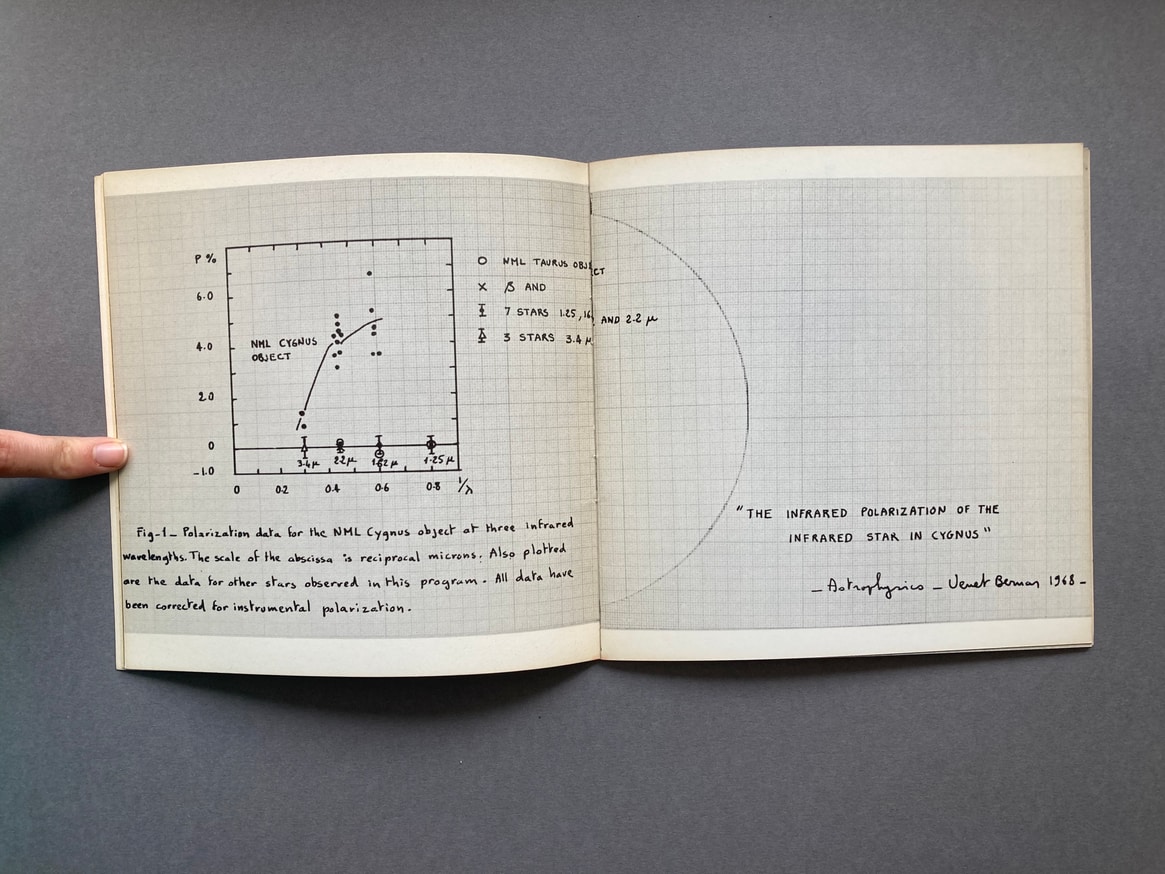 P %
6.0
4.0
2.0
0
-1.0
NML CYGNUS
OBJECT
3.4 μ
2.2 μ
1.62 μ
1.25 μ
0 0.2 0.4 0.6 0.8 1/λ
O NML TAURUS OBJECT
X β AND
7 STARS 1.25, 1.6, AND 2.2 μ
3 STARS 3.4 μ
Fig-1_ Polarization data for the NML Cygnus object at three infrared
wavelengths. The scale of the abscissa is reciprocal microns. Also plotted
are the data for other stars observed in this program. All data have
been corrected for instrumental polarization.
"THE INFRARED POLARIZATION OF THE
INFRARED STAR IN CYGNUS"
_ Astrophysics _ Venet Bernar 1968 -